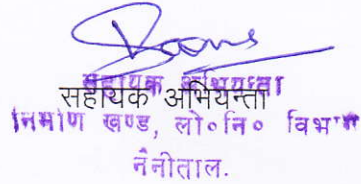 सहायक अभियन्ता
सहायक अभियन्ता
निर्माण खण्ड, लो० नि० विभाग
नैनीताल.